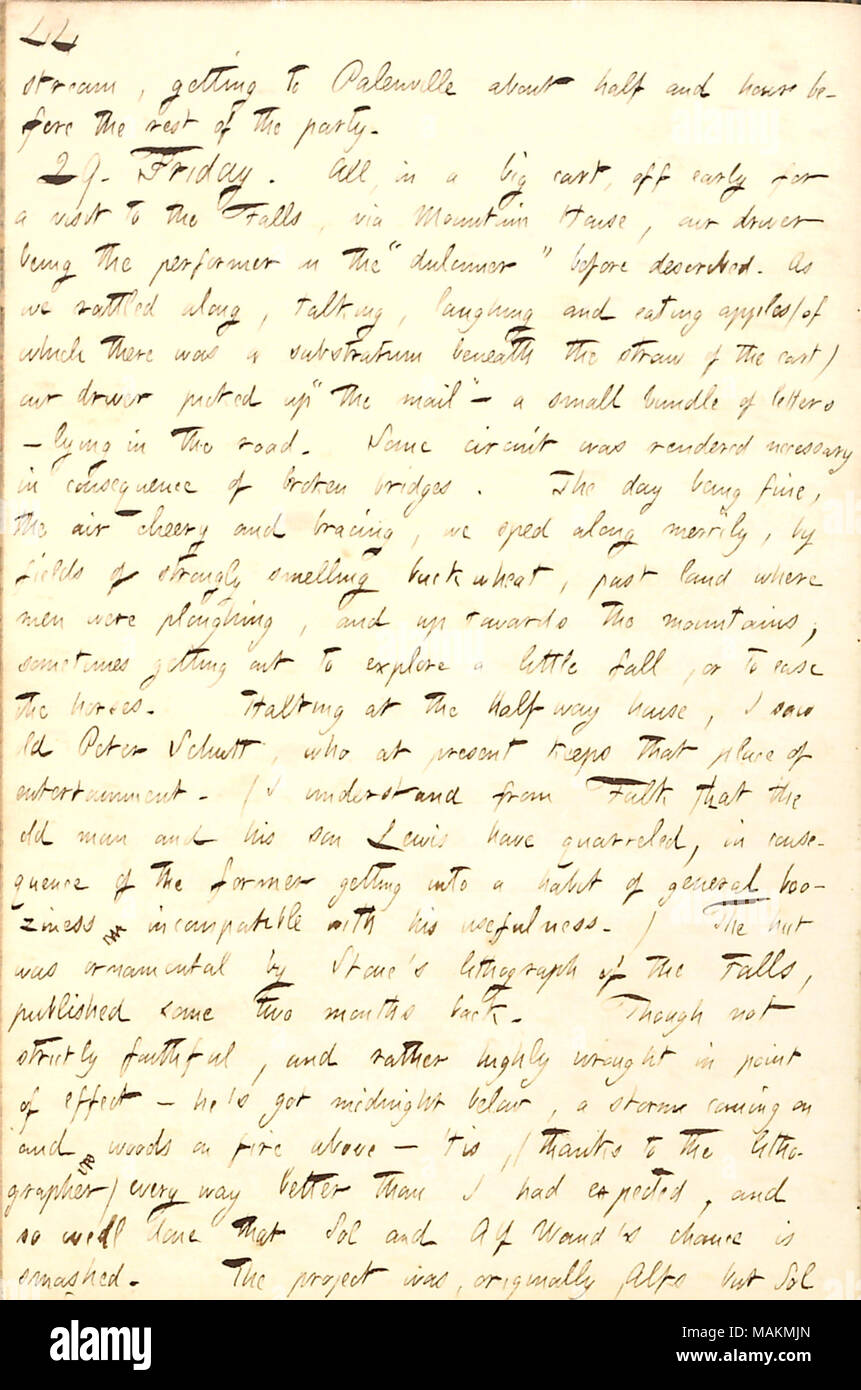 44
stream, getting to Palenville about half and hour be-
fore the rest of the party.
29. Friday. All, in a big cart, off early for
a visit to the Falls, via Mountain House, our driver
being the performer on the "dulcimer" before described. As
we rattled along, talking, laughing and eating apples (of
which there was a substratum beneath the straw of the cart)
our driver picked up "the mail" — a small bundle of letters
— lying in the road. Some circuit was rendered necessary
in consequence of broken bridges. The day being fine,
the air cheery and bracing, we sped along merrily, by
fields of strongly smelling buckwheat, past land where
men were ploughing, and up towards the mountains;
sometimes getting out to explore a little fall, or to ease
the horses. Halting at the Half way house, I saw
old Peter Schutt, who at present keeps that place of
entertainment. (I understand from Falk that the
old man and his son Lewis have quarreled, in conse-
quence of the former getting into a habit of general boo-
ziness incompatible with his usefulness.) The hut
was ornamental by Stone's lithograph of the Falls,
published some two months back. Though not
strictly faithful, and rather highly wrought in point
of effect — he's got midnight below, a storm coming on
and woods on fire above — 'tis, (thanks to the litho-
grapher) every way better than I had expected, and
so well done that Sol and Alf Waud's chance is
smashed. The project was, originally Alf's but Sol
alamy
Image ID: MAKMJN
www.alamy.com